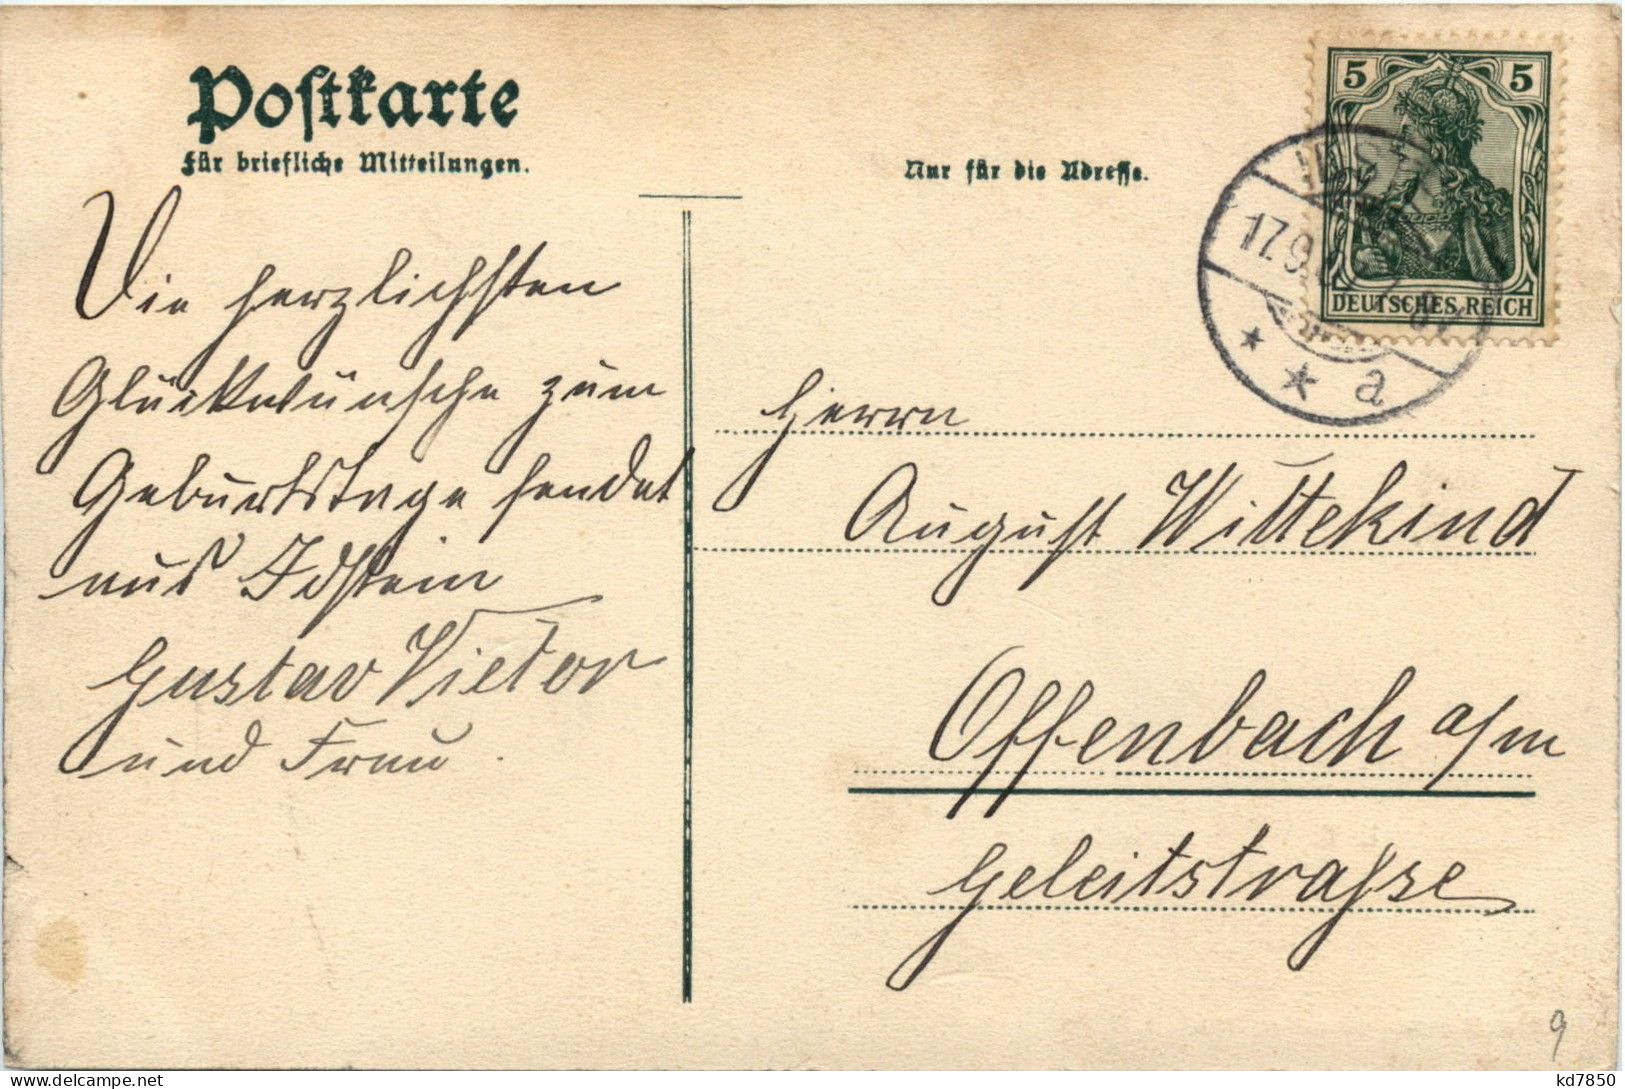 Postkarte
Für briefliche Mitteilungen.
Nur für die Adresse.
5 5
DEUTSCHES REICH
17.9.
a
Die herzlichsten
Glückwünsche zum
Geburtstage sendet
aus Idstein
Gustav Vietor
und Frau.
Herrn
August Wittekind
Offenbach a/m
Geleitstrasse
9
kd7850